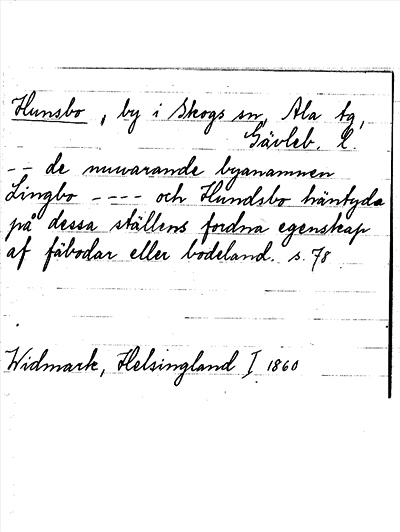 Hunsbo, by i Skogs sn, Ala tg,
Gävleb. l.
-- de nuvarande byanamnen
Lingbo ---- och Hundsbo häntyda
på dessa ställens fordna egenskap
af fäbodar eller bodeland. s. 78
Widmark, Helsingland I 1860